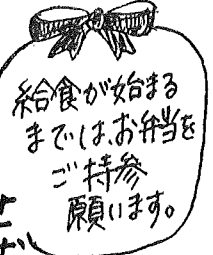 給食が始まる
までは、お弁当を
ご持参
願います。